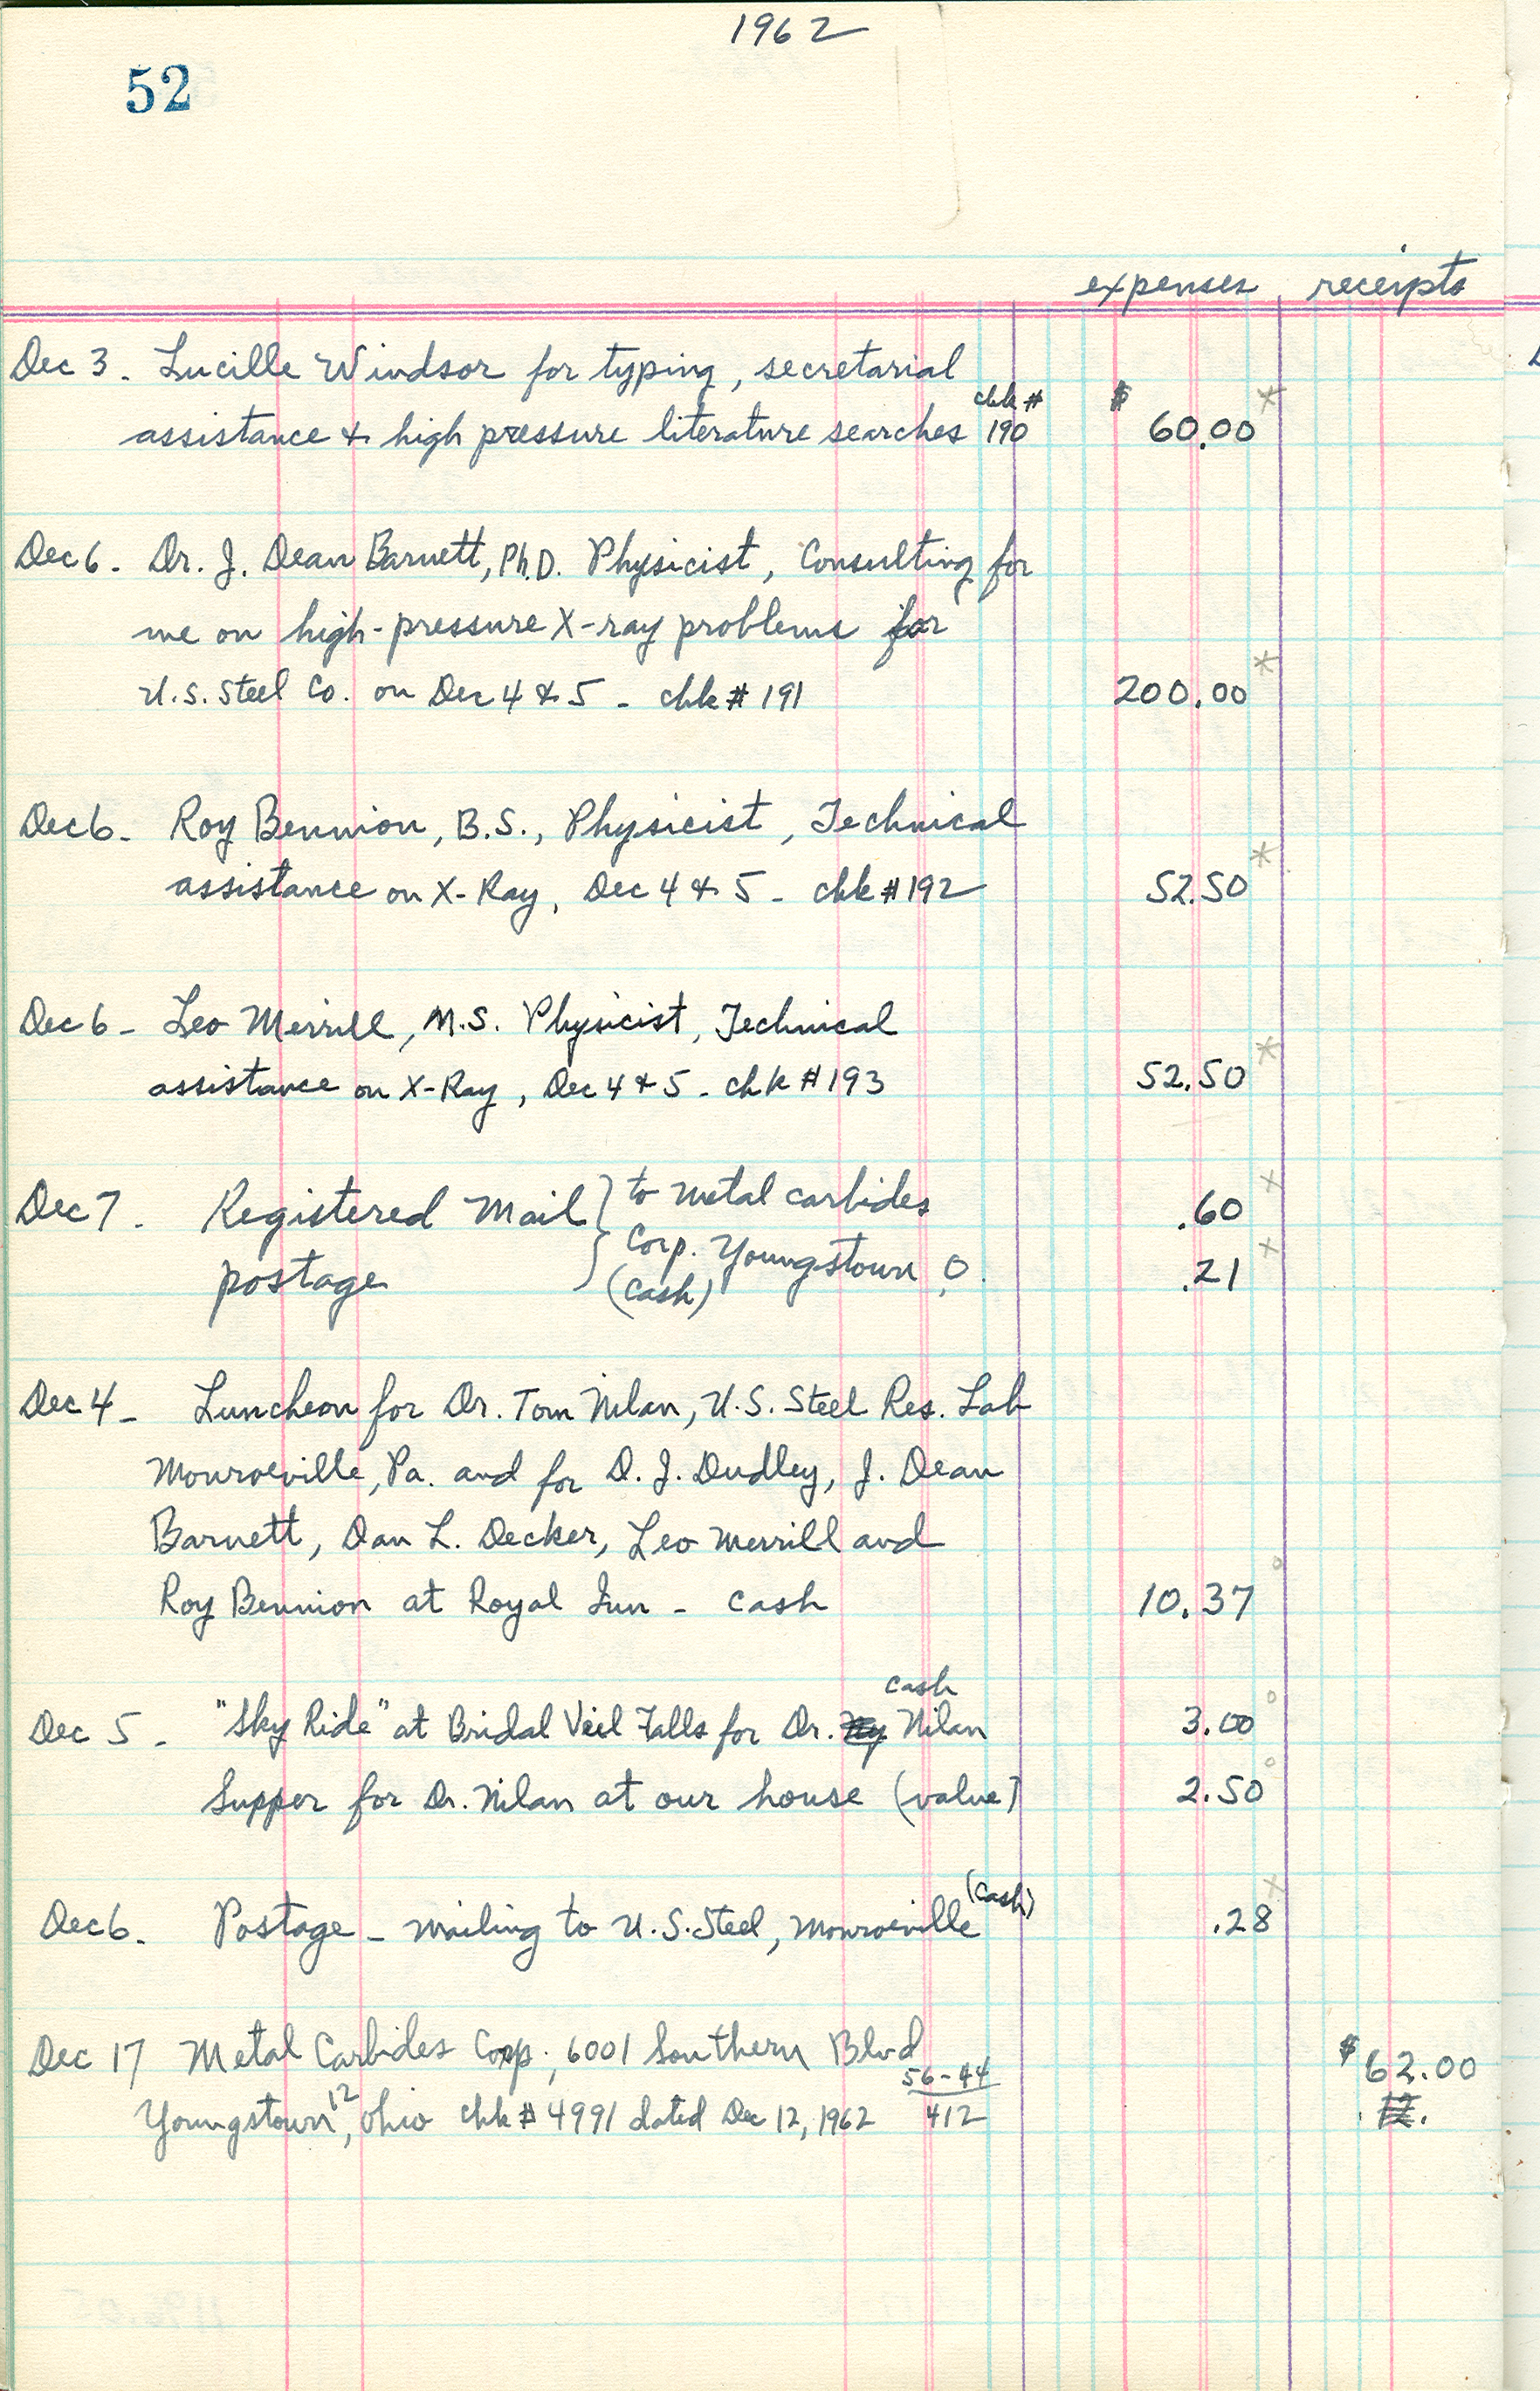 1962
52
expenses receipts
Dec 3. Lucille Windsor for typing, secretarial
assistance & high pressure literature searches chk # 190 $ 60.00 *
Dec 6. Dr. J. Dean Barnett, Ph.D. Physicist, Consulting for
me on high-pressure X-ray problems for
U.S. Steel Co. on Dec 4 & 5 - chk # 191 200.00 *
Dec 6. Roy Bennion, B.S., Physicist, Technical
assistance on X-Ray, Dec 4 & 5 - chk # 192 52.50 *
Dec 6 - Leo Merrill, M.S. Physicist, Technical
assistance on X-Ray, Dec 4 & 5 - chk # 193 52.50 *
Dec 7. Registered Mail } to Metal Carbides .60 x
Corp. Youngstown, O.
postage (cash) .21 x
Dec 4 - Luncheon for Dr. Tom Nilan, U.S. Steel Res. Lab
Monroeville, Pa. and for D. J. Dudley, J. Dean
Barnett, Dan L. Decker, Leo Merrill and
Roy Bennion at Royal Inn - cash 10.37
cash
Dec 5 - "Sky Ride" at Bridal Veil Falls for Dr. Nilan 3.00
Supper for Dr. Nilan at our house (value) 2.50
Dec 6. Postage - mailing to U.S. Steel, Monroeville (cash) .28 x
Dec 17 Metal Carbides Corp., 6001 Southern Blvd $ 62.00
Youngstown 12, Ohio chk # 4991 dated Dec 12, 1962 56-44/412